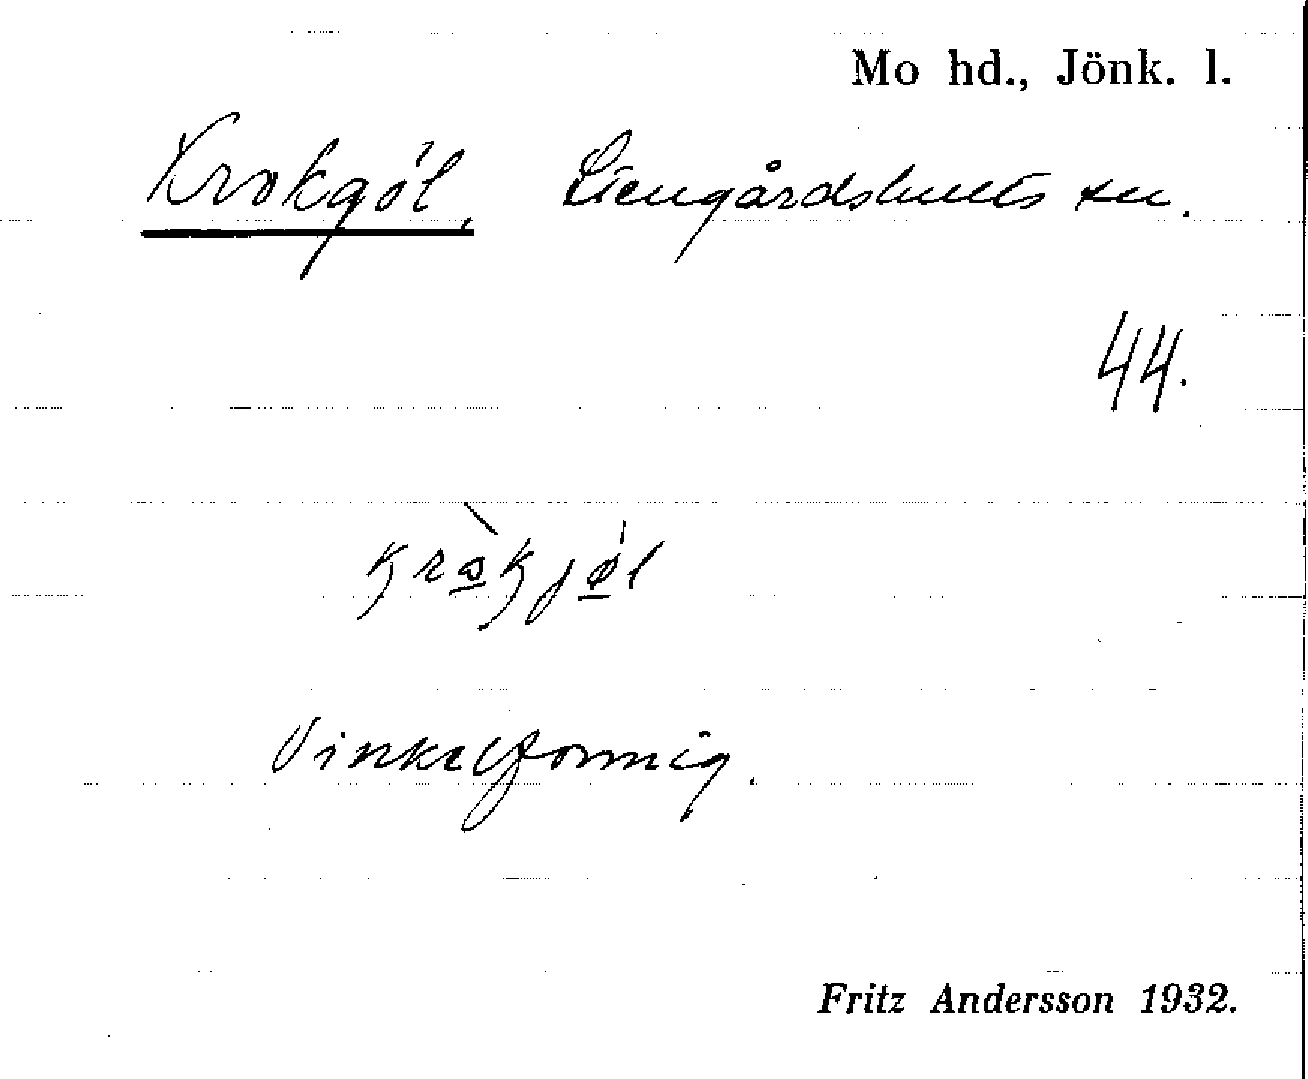 Mo hd., Jönk. l.
Krokgöl, Stengårdshults sn.
44.
krɷ̀kjø̀l
Vinkelformig.
Fritz Andersson 1932.